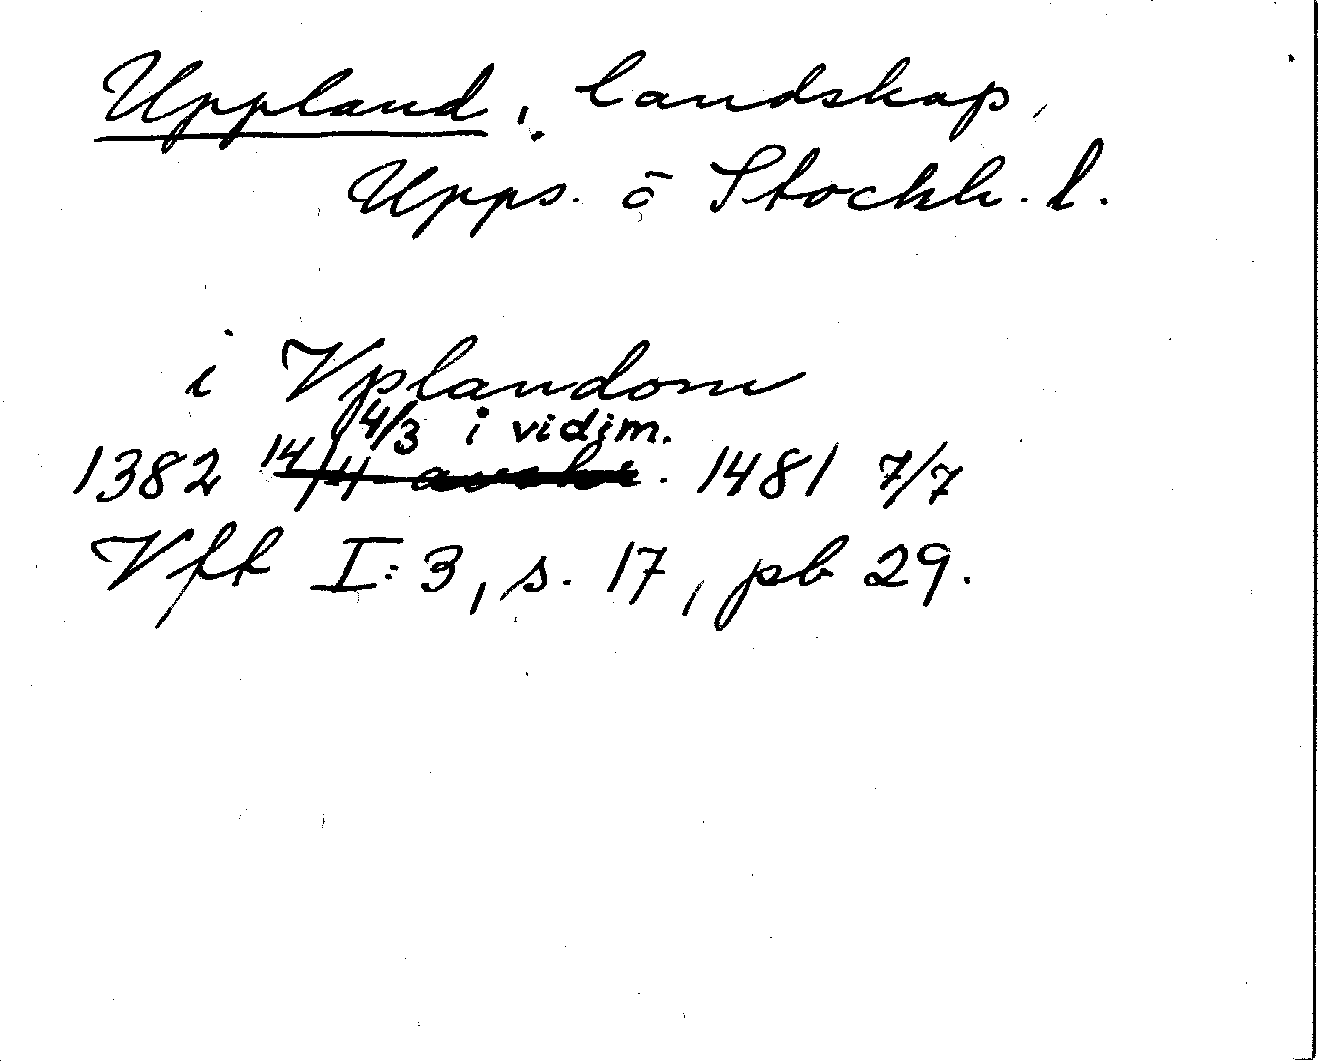 Uppland, landskap,
Upps. o Stockh. l.
i Vplandom
4/3 i vidim.
1382 14/4 avskr. 1481 7/7
Vft I:3, s. 17, pb 29.